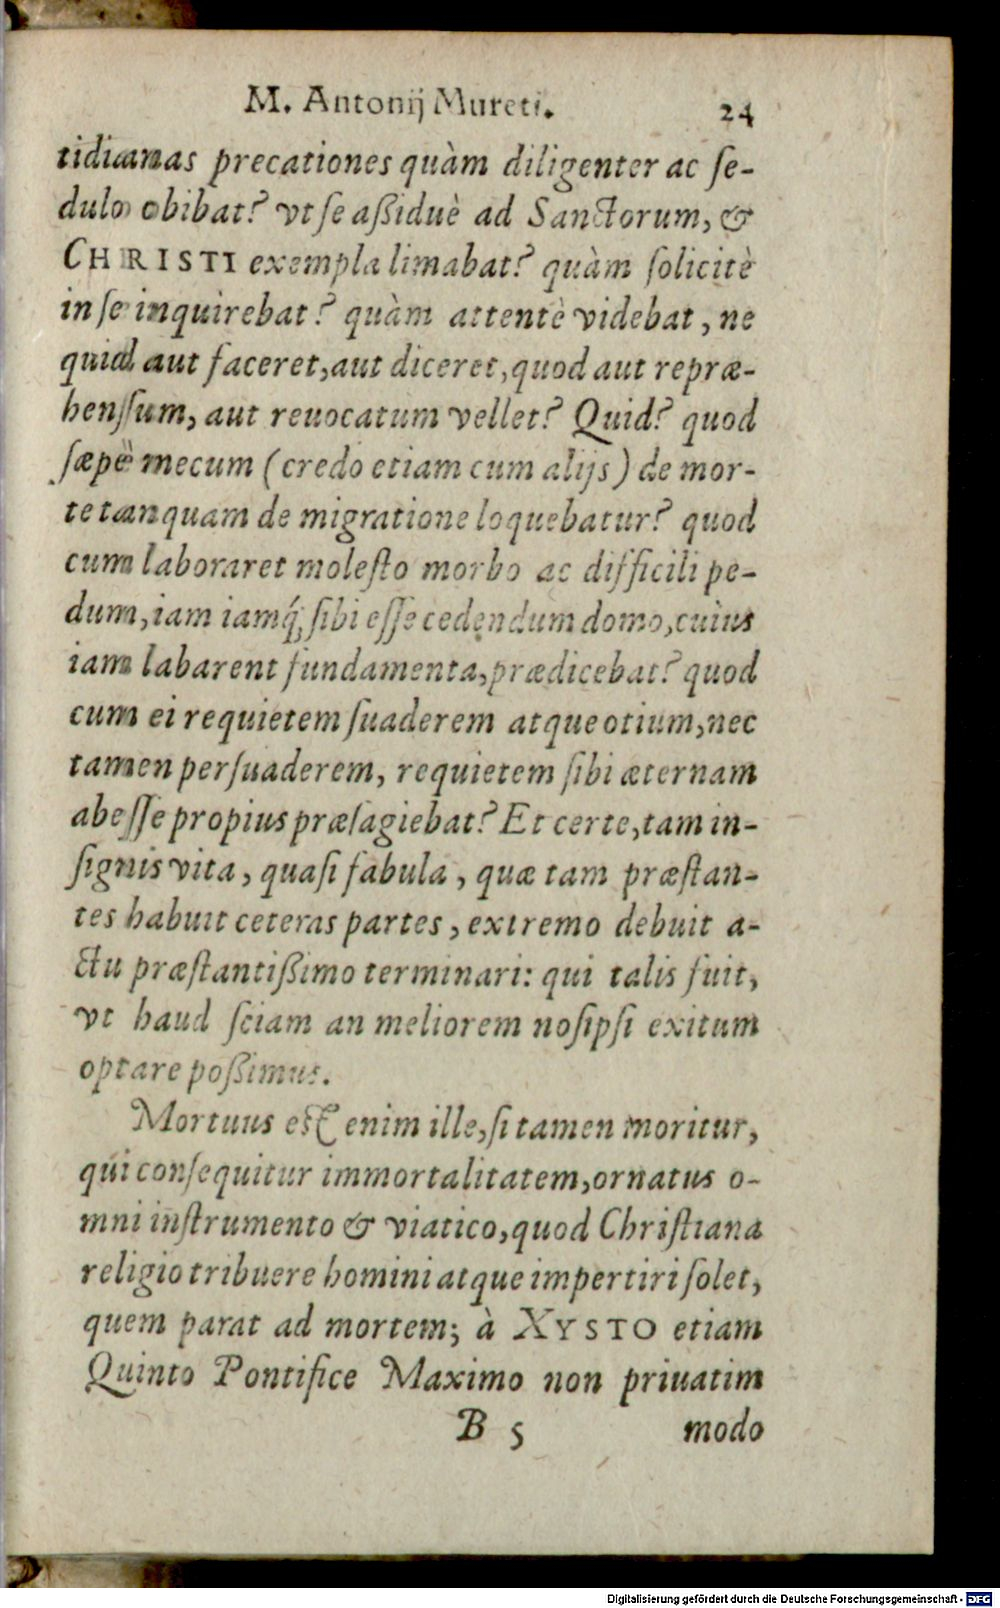 M. Antonij Mureti. 24
tidianas precationes quàm diligenter ac ſe-
dulo obibat? vt ſe aßiduè ad Sanctorum, &
CHRISTI exempla limabat? quàm ſolicitè
in ſe inquirebat? quàm attentè videbat, ne
quid aut faceret, aut diceret, quod aut repræ-
henſum, aut reuocatum vellet? Quid? quod
ſæpè mecum (credo etiam cum alijs) de mor-
te tanquam de migratione loquebatur? quod
cum laboraret moleſto morbo ac difficili pe-
dum, iam iamq́; ſibi eſſe cedendum domo, cuius
iam labarent fundamenta, prædicebat? quod
cum ei requietem ſuaderem atque otium, nec
tamen perſuaderem, requietem ſibi æternam
abeſſe propius præſagiebat? Et certe, tam in-
ſignis vita, quaſi fabula, quæ tam præſtan-
tes habuit ceteras partes, extremo debuit a-
ctu præſtantißimo terminari: qui talis fuit,
vt haud ſciam an meliorem noſipſi exitum
optare poßimus.
Mortuus eſt enim ille, ſi tamen moritur,
qui conſequitur immortalitatem, ornatus o-
mni inſtrumento & viatico, quod Chriſtiana
religio tribuere homini atque impertiri ſolet,
quem parat ad mortem; à XYSTO etiam
Quinto Pontifice Maximo non priuatim
B 5 modo
Digitalisierung gefördert durch die Deutsche Forschungsgemeinschaft - DFG